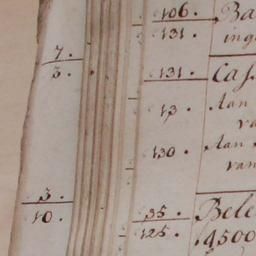 106. Ba
131. ing
7.
3.
131. Cas
13. Aan
va
130. Aan
van
3.
10.
35. Bele
125. 4500